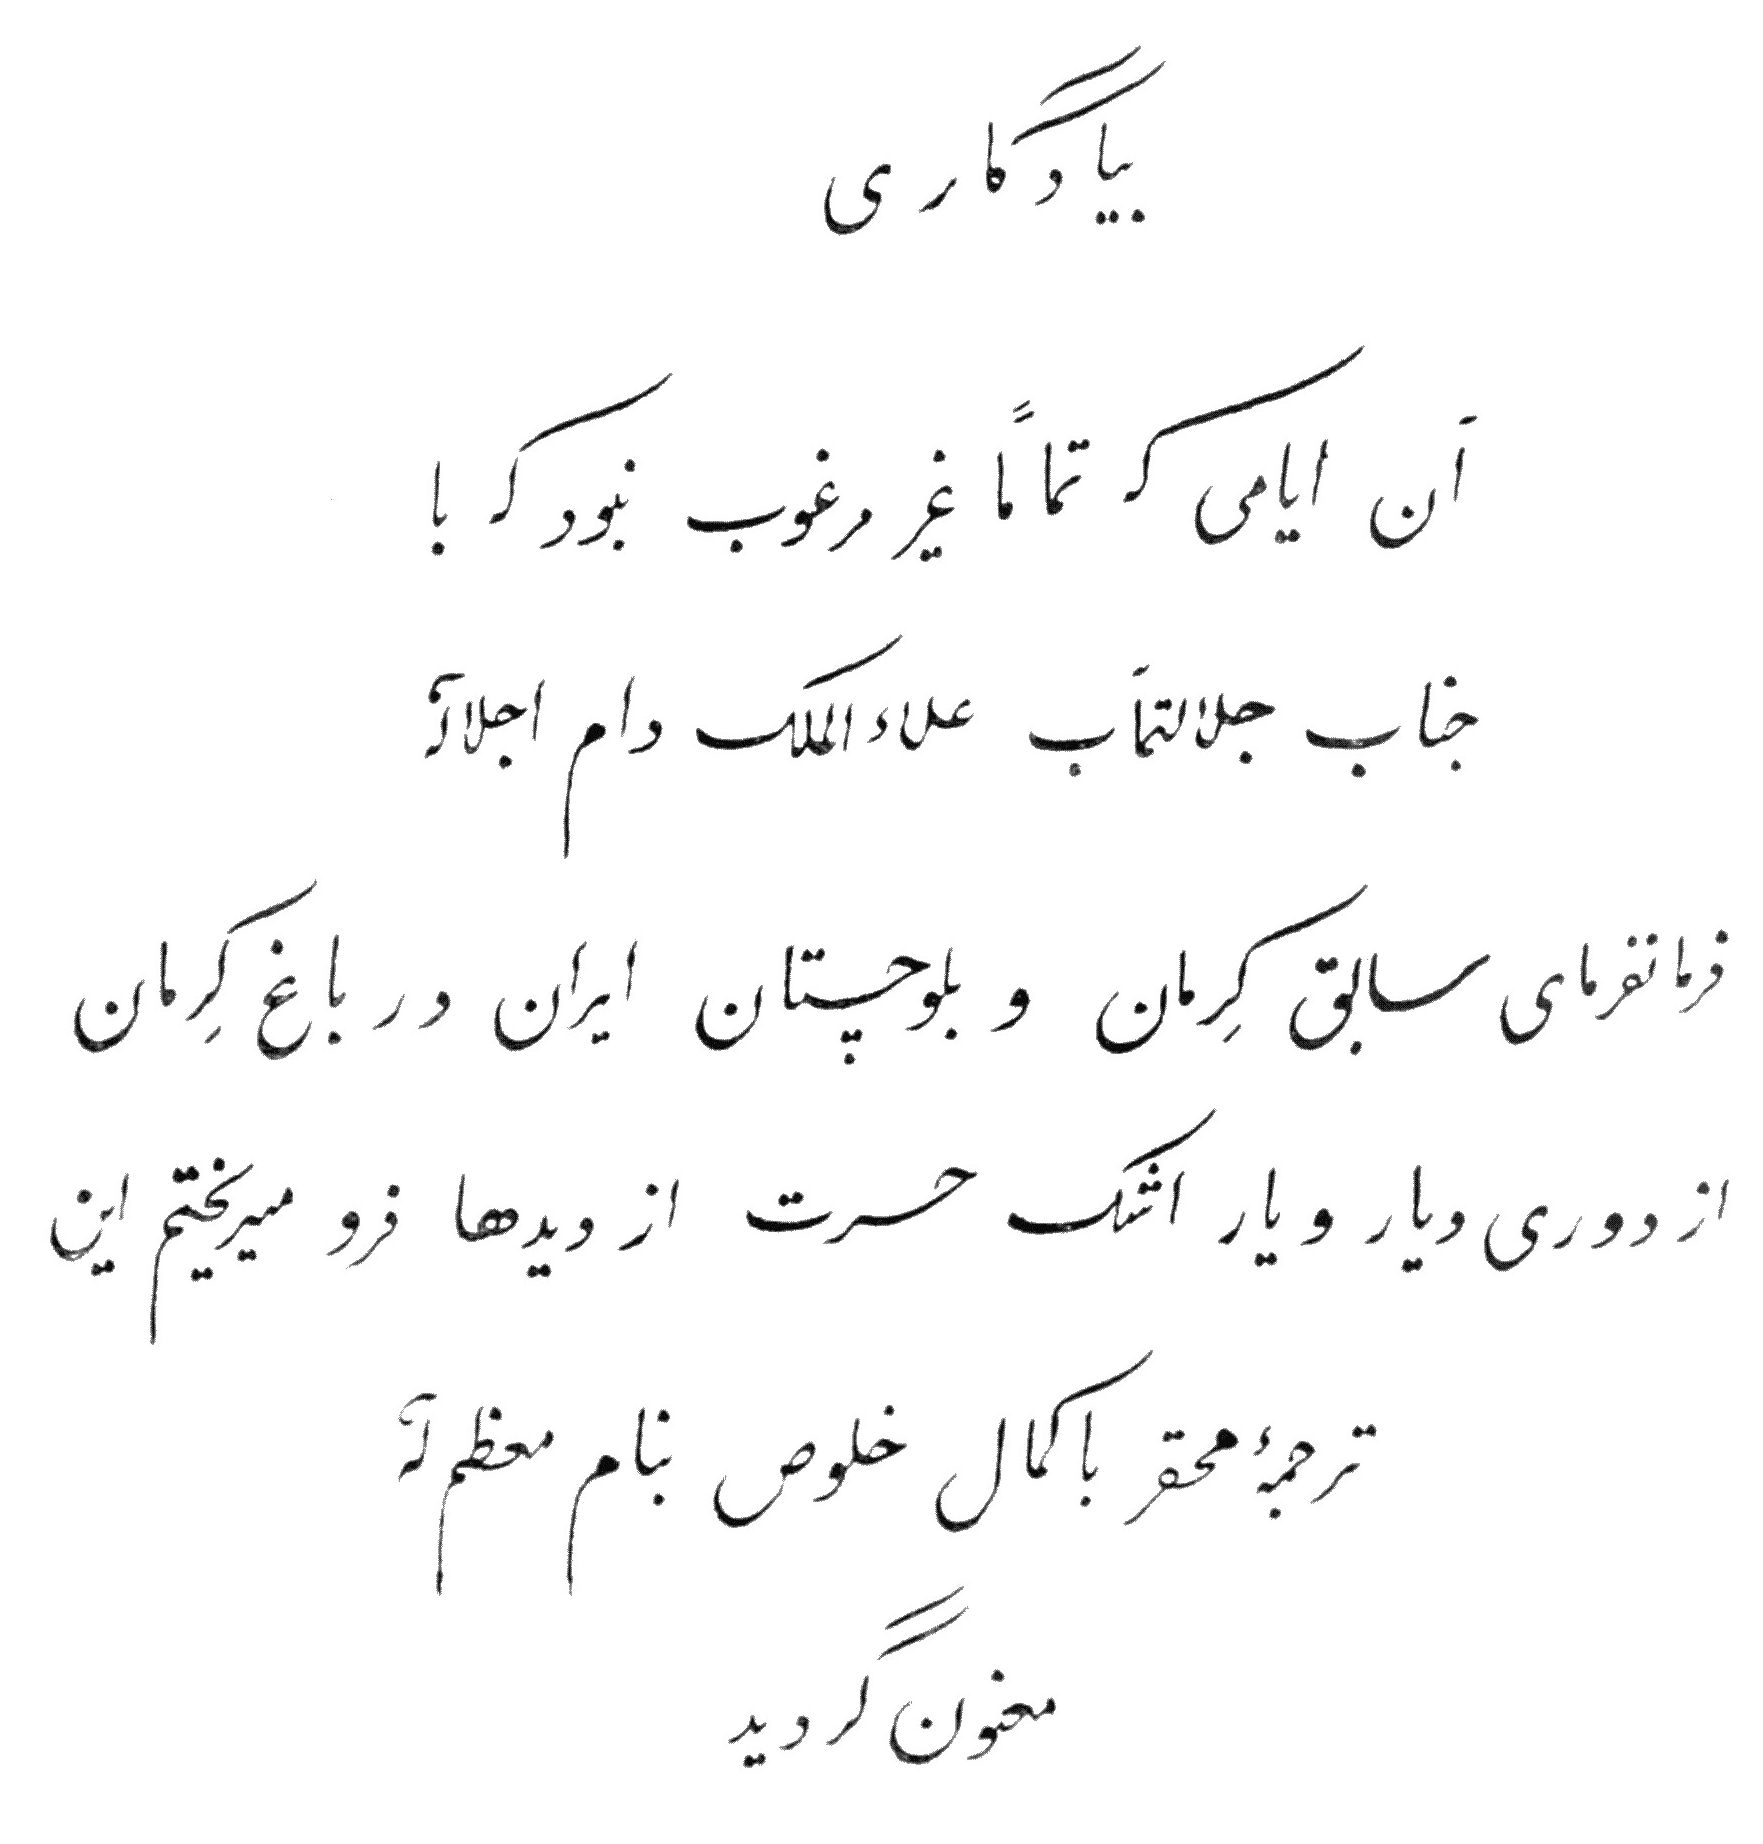 بیادگاری
آن ایامی که تماماً غیر مرغوب نبود که با
جناب جلالتمآب علاء الملک دام اجلالهٔ
فرمانفرمای سابق کِرمان و بلوچستان ایران در باغ کِرمان
از دوری دیار و یار اشک حسرت از دیدها فرو میریختیم این
ترجمهٔ محقر با کمال خلوص بنام معظم لهٔ
معنون گردید